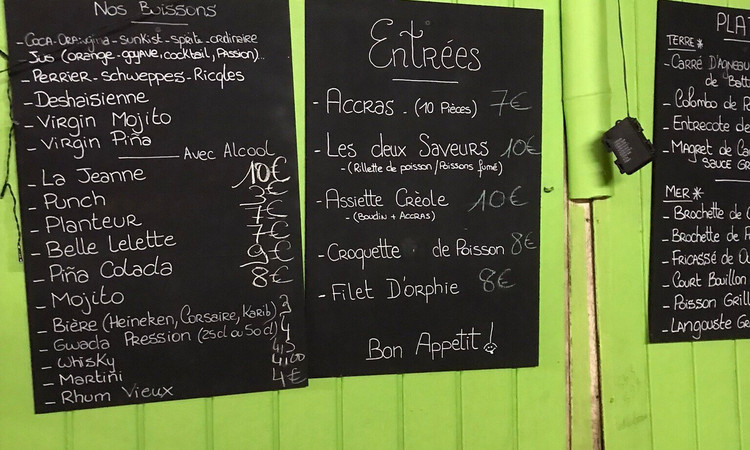 Nos Buissons
- Coca - Orangina - sunkist - sprite - ordinaire
Jus (orange - goyave, cocktail, Passion)...
- Perrier - schweppes - Ricqles
- Deshaisienne
- Virgin Mojito
- Virgin Piña
Avec Alcool
- La Jeanne 10€
- Punch 3€
- Planteur 7€
- Belle Lelette 7€
- Piña Colada 9€
- Mojito 8€
- Bière (Heineken, Corsaire, Karib) 3
- Gwada Pression (25cl ou 50cl) 4
- Whisky
- Martini
- Rhum Vieux 4€
Entrées
- Accras - (10 Pièces) 7€
- Les deux Saveurs 10€
- (Rillette de poisson / Poissons fumé)
- Assiette Crèole 10€
- (Boudin + Accras)
- Croquette de Poisson 8€
- Filet D'orphie 8€
Bon Appetit!
PLA
TERRE*
- Carré D'Agneau
de Batt
- Colombo de
- Entrecote de
- Magret de Ca
sauce Gr
MER*
- Brochette de C
- Brochette de
- Fricassé de Ou
- Court Bouillon
- Poisson Grill
- Langouste Gr